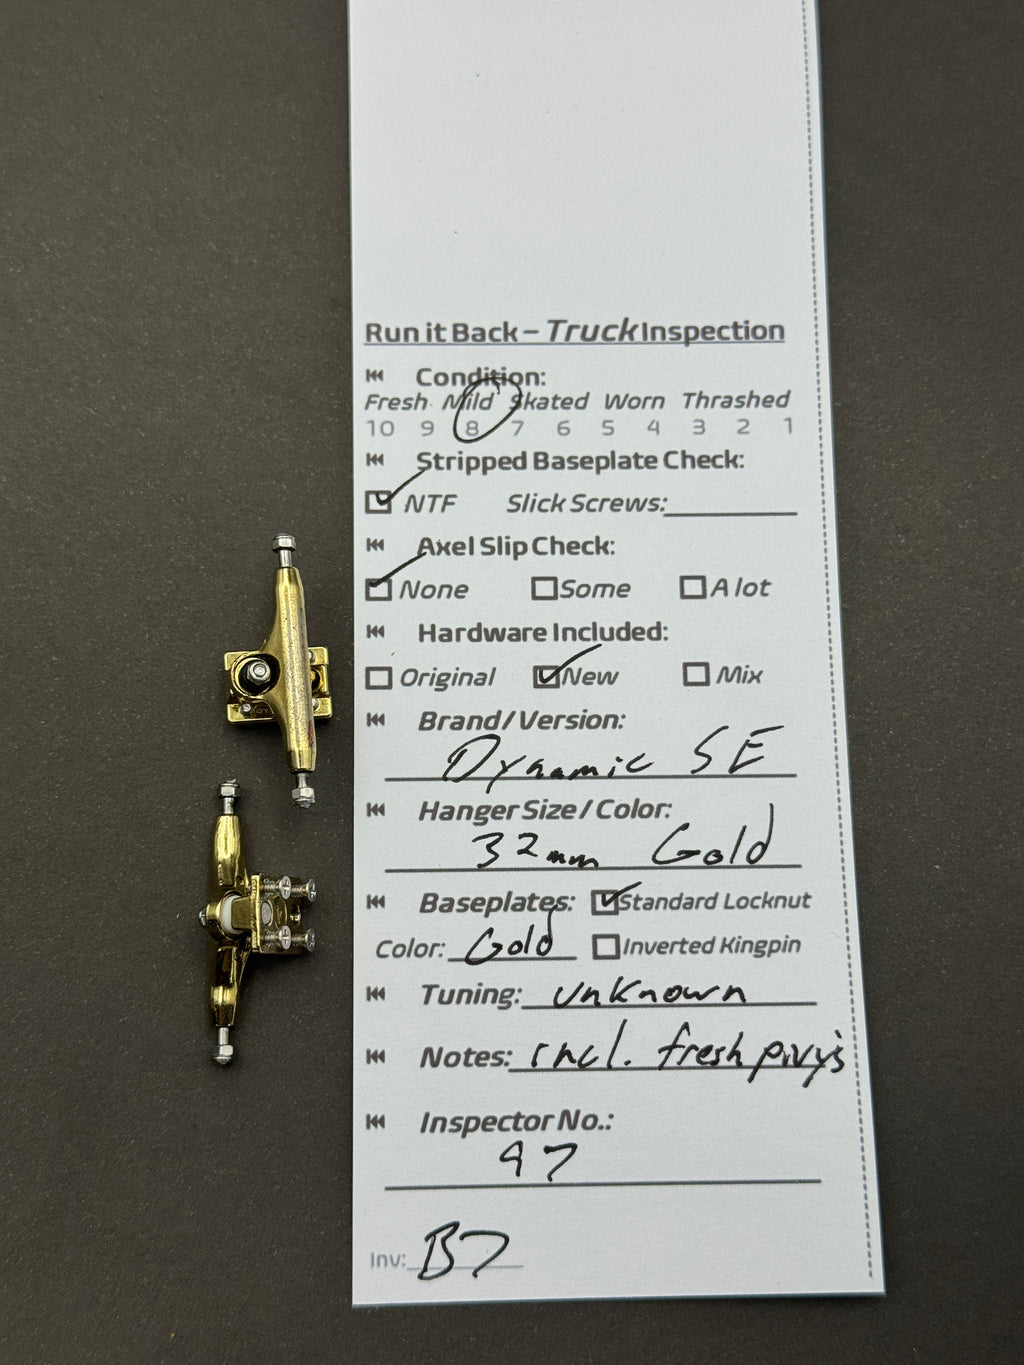 Run it Back – Truck Inspection
Condition:
Fresh Mild Skated Worn Thrashed
10 9 8 7 6 5 4 3 2 1
Stripped Baseplate Check:
NTF Slick Screws:
Axel Slip Check:
None Some A lot
Hardware Included:
Original New Mix
Brand/Version:
Dynamic SE
Hanger Size/Color:
32mm Gold
Baseplates: Standard Locknut
Color: Gold Inverted Kingpin
Tuning: unknown
Notes: incl. fresh pivy's
Inspector No.:
97
Inv: B7